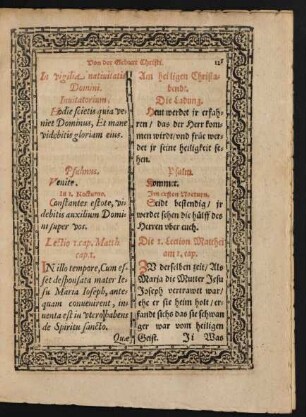 Von der Geburt Christi. 125
In vigilia natiuitatis
Domini.
Inuitatorium.
Hodie scietis quia ve-
niet Dominus, Et mane
videbitis gloriam eius.
Psalmus.
Venite.
In 1. Nocturno.
Constanter estote, vi-
debitis auxilium Domi-
ni super vos.
Lectio 1. cap. Matth.
cap. 1.
IN illo tempore, Cum es-
set desponsata mater Ie-
su Maria Ioseph, ante-
quam conuenirent, in-
uenta est in vtero habens
de Spiritu sancto.
Quæ
Am heiligen Christa-
bendt.
Die Ladung.
Heut werdet jr erfah-
ren / das der Herr kom-
men wirdt / vnd früe wer-
det jr seine heiligkeit se-
hen.
Psalm.
Kommet.
Im ersten Nocturn.
Seidt bestendig / jr
werdet sehen die hülff des
Herren vber euch.
Die 1. Lection Matthei
am 1. cap.
ZV derselben zeit / Als
Maria die Mutter Jesu
Joseph vertrawet war /
ehe er sie heim holt / er-
fandt sichs das sie schwan
ger war vom heiligen
Geist. Ii Was